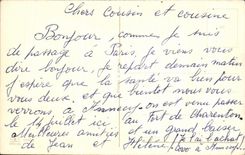 Chers Cousin et cousine
Bonjour, comme je suis
de passage à Paris, je viens vous
dire bonjour, je repart demain matin
J'espère que la santé va bien pour
vous deux, et que bientôt nous vous
verrons à Annecy, on est venu passer
le 14 juillet ici au Fort de Charenton
affectueuses amitiés et un grand baiser
de Jean et Hélène